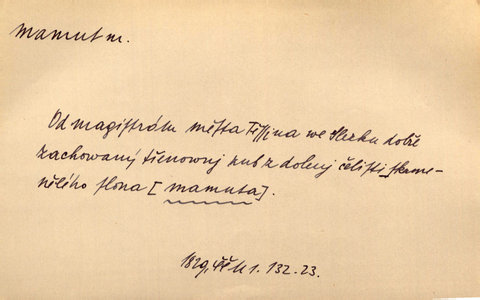 mamut m.
Od magistrátu města Těssina we Slezku dobře
zachowaný třenowný zub z dolený čelisti skame-
nělého slona [mamuta].
1829, ČČM 1. 132. 23.